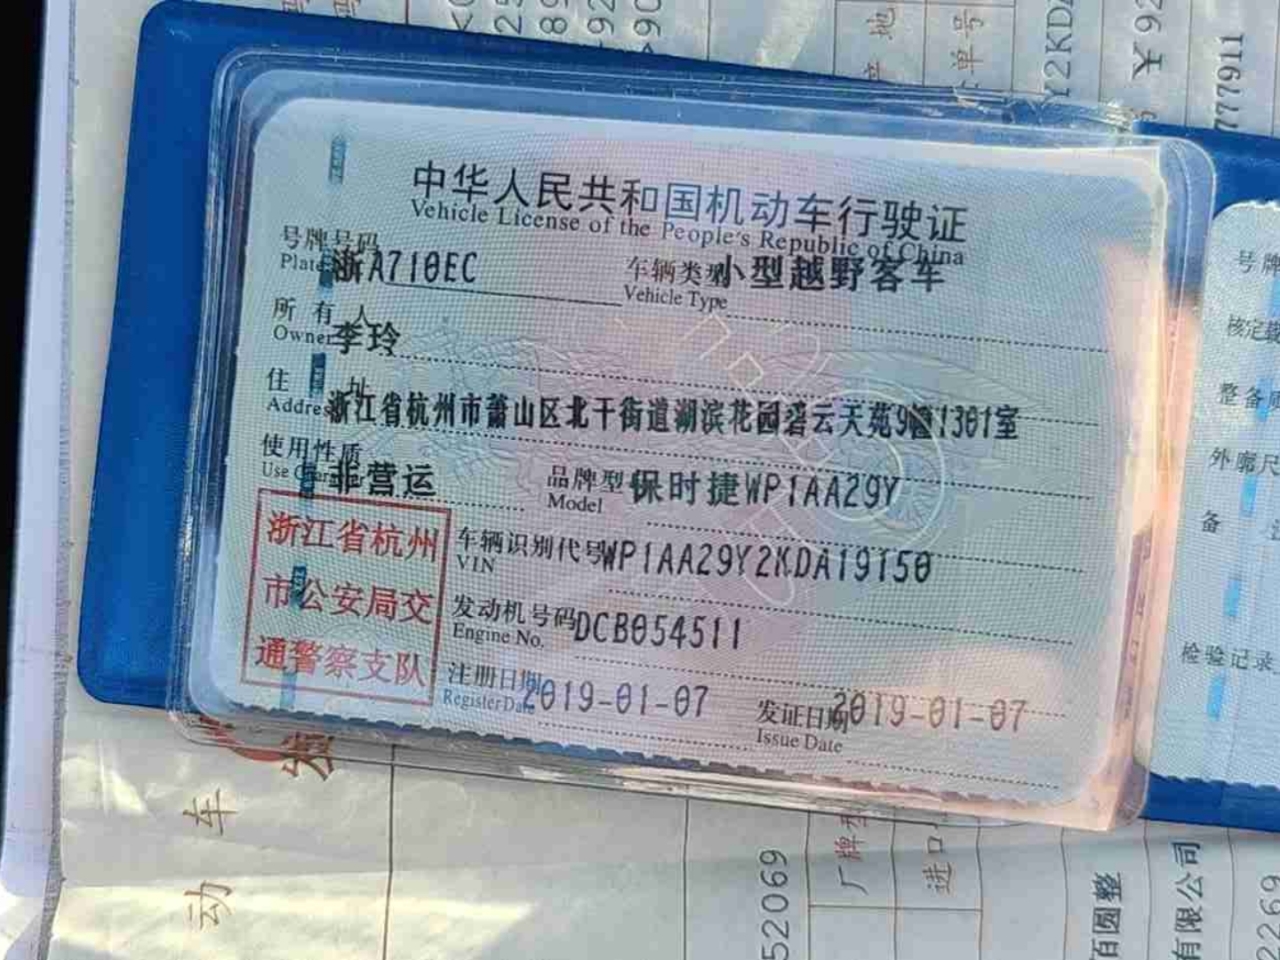 中华人民共和国机动车行驶证
Vehicle License of the People's Republic of China
号牌号码 浙A710EC 车辆类型 小型越野客车
Plate Vehicle Type
所有人 李玲
Owner
住址 浙江省杭州市萧山区北干街道湖滨花园碧云天苑9幢1301室
Address
使用性质 非营运 品牌型 保时捷WP1AA29Y
Use Model
浙江省杭州
市公安局交
通警察支队
车辆识别代号 WP1AA29Y2KDA19150
VIN
发动机号码 DCB054511
Engine No.
注册日期 2019-01-07 发证日期 2019-01-07
Register Date Issue Date
号牌
核定载
整备质
外廓尺
备
检验记录
单号
12KDA
￥92
777911
动 车
52069
厂牌型
进口
佰圆整
有限公司
2269